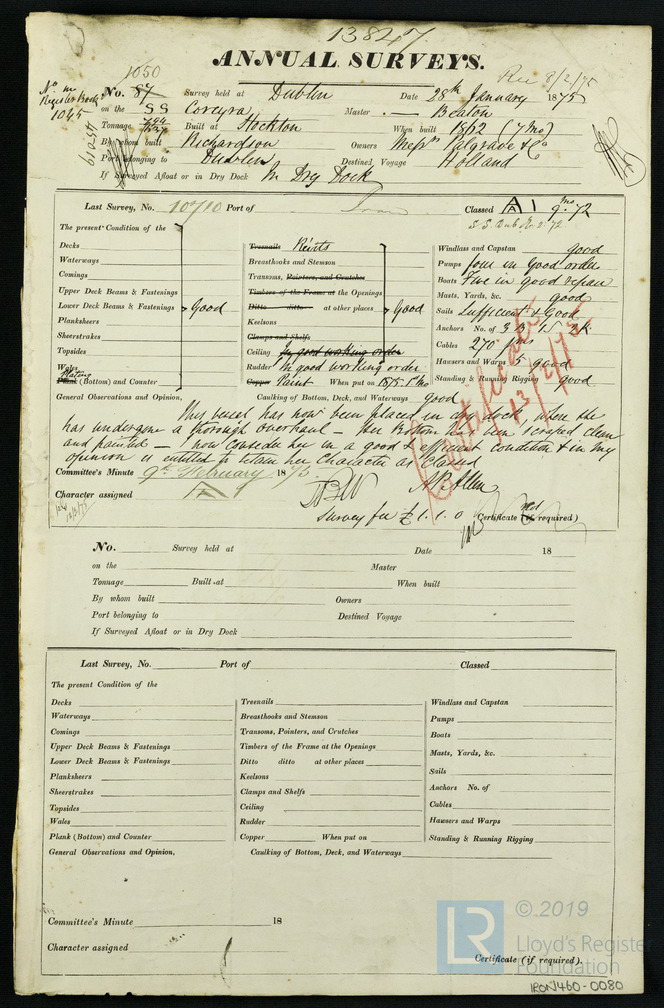 13847
ANNUAL SURVEYS.
1050
Rec 8/2/75
No. in Register Book 1045
No. 87 Survey held at Dublin Date 28th January 1875
on the SS Corcyra Master — Beaton
Tonnage Built at Stockton When built 1862 (7 Mo)
By whom built Richardson Owners Messrs Palgrave & Co
Port belonging to Dublin Destined Voyage Holland
If Surveyed Afloat or in Dry Dock In Dry Dock
Last Survey, No. 10710 Port of Iron Classed A 1 9 mo. 72
The present Condition of the
Decks
Waterways
Comings
Upper Deck Beams & Fastenings
Lower Deck Beams & Fastenings Good
Planksheers
Sheerstrakes
Topsides
Wales
Plating
Plank (Bottom) and Counter
Treenails Rivets
Breasthooks and Stemson
Transoms, Pointers, and Crutches
Timbers of the Frame at the Openings
Ditto ditto at other places Good
Keelsons
Clamps and Shelfs
Ceiling In good working order
Rudder In good working order
Copper Paint When put on 1875. 1 Mo
Windlass and Capstan good
Pumps four in good order
Boats Five in good repair
Masts, Yards, &c. good
Sails Sufficient & Good
Anchors No. of 3 B, 1 S, 2 K
Cables 270 fms
Hawsers and Warps 5 good
Standing & Running Rigging good
General Observations and Opinion, Caulking of Bottom, Deck, and Waterways good
This vessel has now been placed in dry dock, where she
has undergone a thorough overhaul — Her Bottom has been scraped clean
and painted — I now consider her in a good & efficient condition & in my
opinion is entitled to retain her Character as Classed
Certificate 13/2/75
Committee's Minute 9th February 1875.
A B Allen
Character assigned A 1
Survey fee £1. 1. 0 Certificate (if required)
No. Survey held at Date 18
on the Master
Tonnage Built at When built
By whom built Owners
Port belonging to Destined Voyage
If Surveyed Afloat or in Dry Dock
Last Survey, No. Port of Classed
The present Condition of the
Decks
Waterways
Comings
Upper Deck Beams & Fastenings
Lower Deck Beams & Fastenings
Planksheers
Sheerstrakes
Topsides
Wales
Plank (Bottom) and Counter
Treenails
Breasthooks and Stemson
Transoms, Pointers, and Crutches
Timbers of the Frame at the Openings
Ditto ditto at other places
Keelsons
Clamps and Shelfs
Ceiling
Rudder
Copper When put on
Windlass and Capstan
Pumps
Boats
Masts, Yards, &c.
Sails
Anchors No. of
Cables
Hawsers and Warps
Standing & Running Rigging
General Observations and Opinion, Caulking of Bottom, Deck, and Waterways
Committee's Minute 18
Character assigned
Certificate (if required).
LR
© 2019
Lloyd's Register
Foundation
IRON460-0080